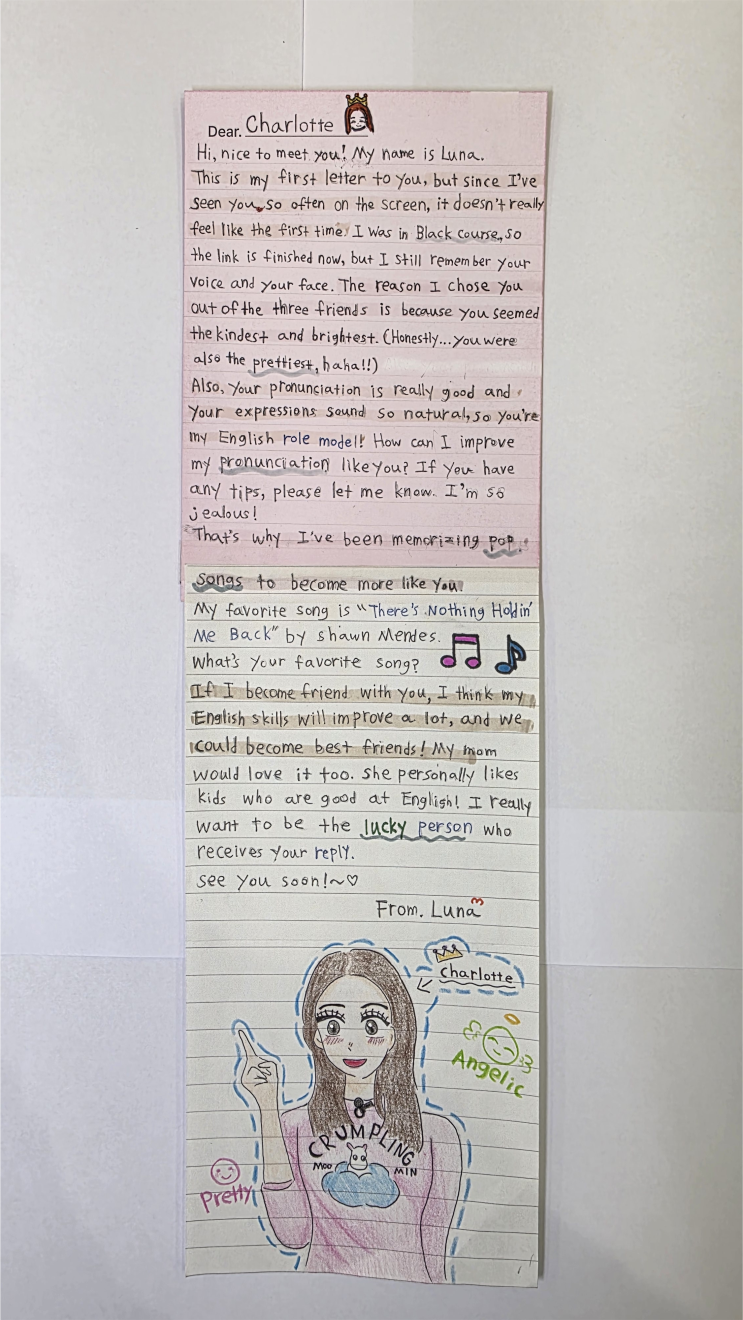 Dear. Charlotte
Hi, nice to meet you! My name is Luna.
This is my first letter to you, but since I've
seen you so often on the screen, it doesn't really
feel like the first time. I was in Black course, so
the link is finished now, but I still remember your
voice and your face. The reason I chose you
out of the three friends is because you seemed
the kindest and brightest. (Honestly... you were
also the prettiest, haha!!)
Also, your pronunciation is really good and
your expressions sound so natural, so you're
my English role model! How can I improve
my pronunciation like you? If you have
any tips, please let me know. I'm so
jealous!
That's why I've been memorizing pop
songs to become more like you.
My favorite song is "There's Nothing Holdin'
Me Back" by shawn Mendes.
What's your favorite song?
If I become friend with you, I think my
English skills will improve a lot, and we
could become best friends! My mom
would love it too. She personally likes
kids who are good at English! I really
want to be the lucky person who
receives your reply.
see you soon!~♡
From. Luna
Charlotte
Angelic
CRUMPLING
MOO MIN
Pretty